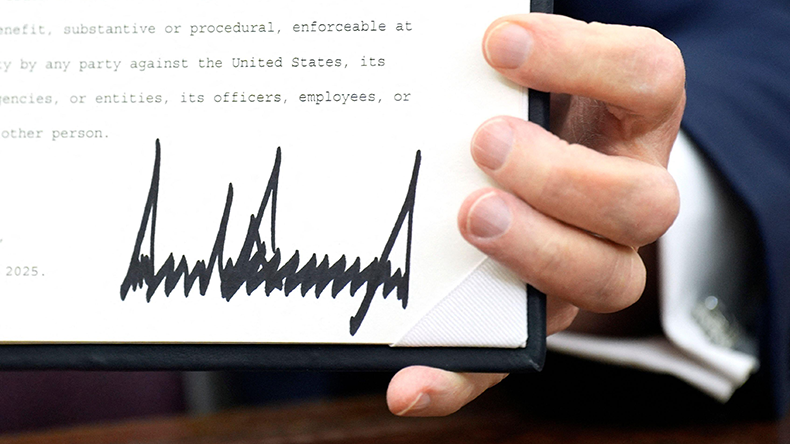 enefit, substantive or procedural, enforceable at
ty by any party against the United States, its
gencies, or entities, its officers, employees, or
other person.
2025.